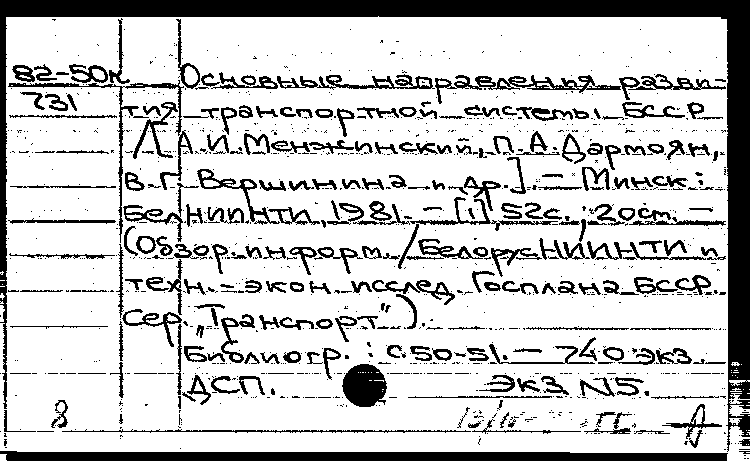 82-50к Основные направления разви-
731 тия транспортной системы БССР
/[А.И.Менжинский, П.А.Дармоян,
В.Г. Вершинина и др.]. - Минск:
БелНИИНТИ, 1981. - [1], 52с.; 20см. -
(Обзор. информ. / БелорусНИИНТИ и
техн.-экон. исслед. Госплана БССР.
Сер. „Транспорт").
Библиогр.: с.50-51. - 740 экз.
ДСП. Экз N5.
8 13/IV-